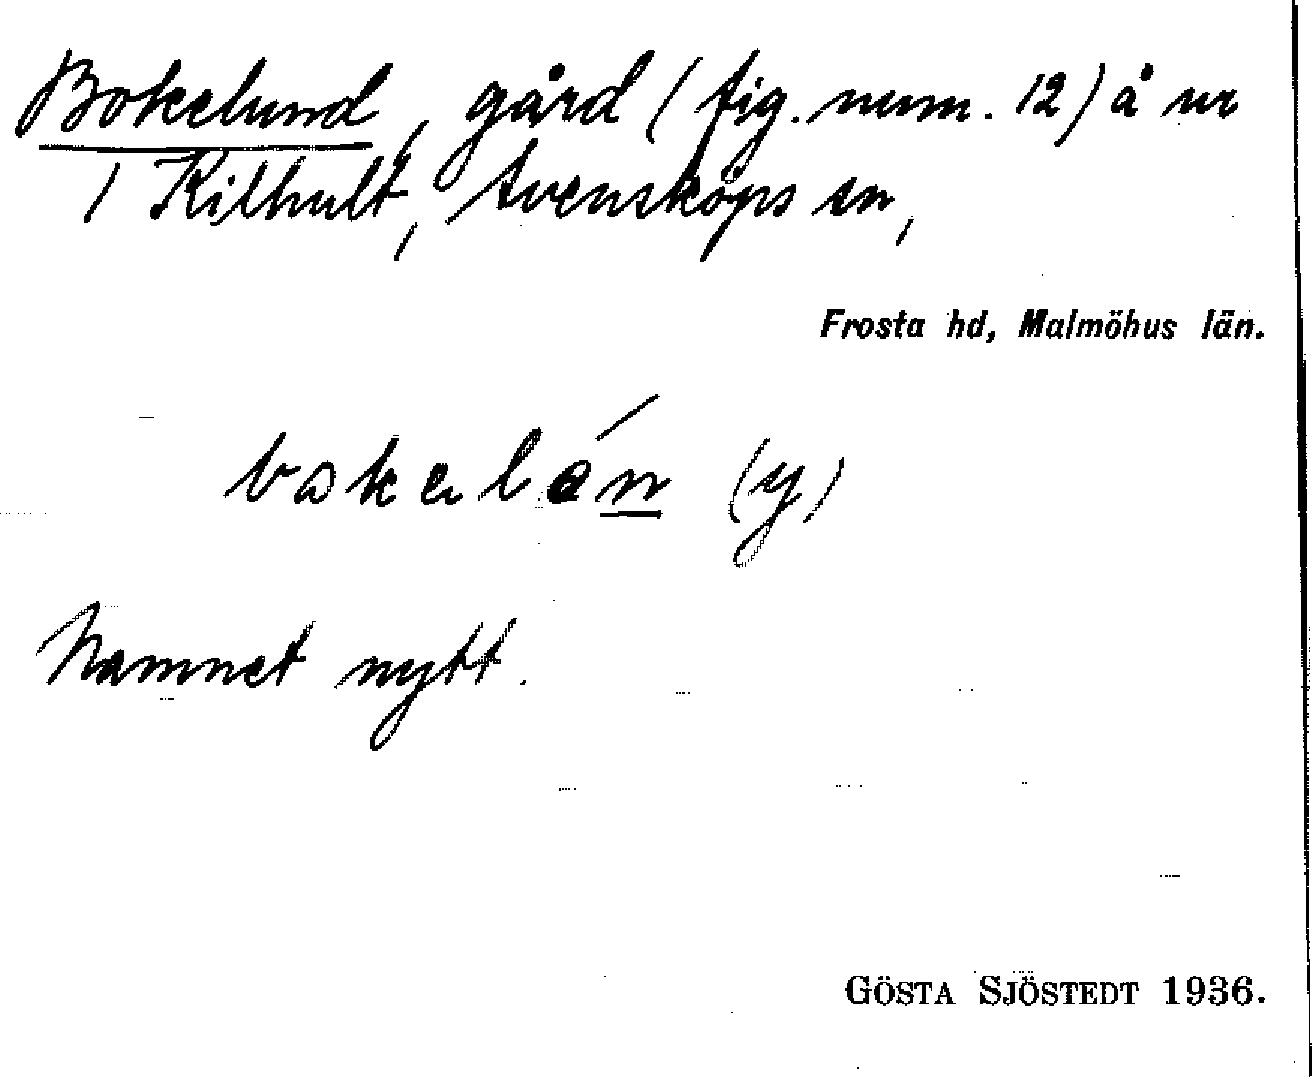 Bokelund, gård (fig. num. 12) å nr
1 Kilhult, Svensköps sn,
Frosta hd, Malmöhus län.
(y)
Namnet nytt.
GÖSTA SJÖSTEDT 1936.